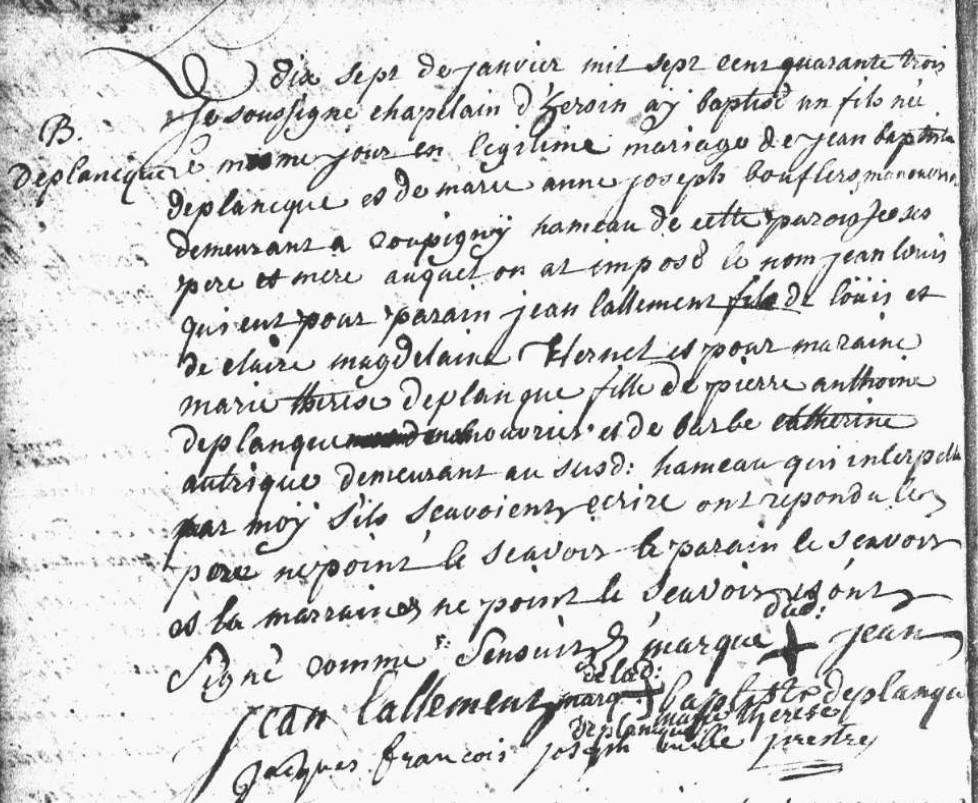 Le dix sept de janvier mil sept cent quarante trois
Je soussigné chapelain d'hersin ay baptisé un fils né
B.
Deplancque
le meme jour en legitime mariage de jean baptiste
deplancque et de marie anne joseph bouflers manouvrier
demeurant a coupigny hameau de cette paroisse ses
pere et mere auquel on at imposé le nom jean louis
qui eut pour parain jean lallement fils de loüis et
de claire magdelaine et pour maraine
marie therese deplanque fille de pierre anthoine
deplanque et de barbe catherine
autrique demeurant au susd: hameau qui interpellé
par moy s'ils scavoient ecrire ont repondu le
pere ne point le scavoir le parain le scavoir
et la marraine ne point le scavoir et ont
signé comme s'ensuit marque dud: jean
jean lallement marq delad: baptiste deplanque
marie therese deplancque
jacques francois joseph prestre